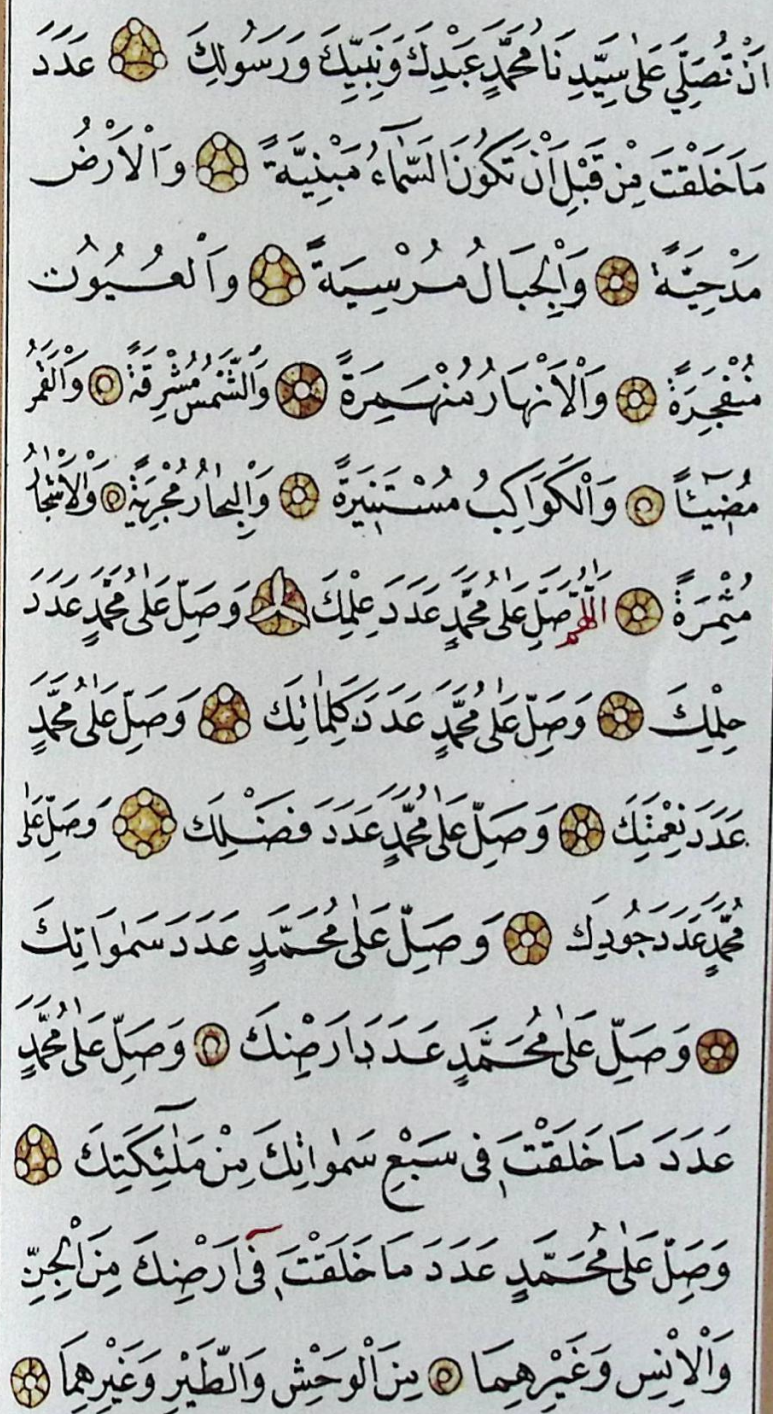 اَنْ تُصَلِّيَ عَلٰى سَيِّدِنَا مُحَمَّدٍ عَبْدِكَ وَنَبِيِّكَ وَرَسُولِكَ عَدَدَ
مَا خَلَقْتَ مِنْ قَبْلِ اَنْ تَكُونَ السَّمَاۤءُ مَبْنِيَّةً وَالْاَرْضُ
مَدْحِيَّةً وَالْجِبَالُ مُرْسِيَةً وَالْعُيُونُ
مُنْفَجِرَةً وَالْاَنْهَارُ مُنْهَمِرَةً وَالشَّمْسُ مُشْرِقَةً وَالْقَمَرُ
مُضِيۤئًا وَالْكَوَاكِبُ مُسْتَنِيرَةً وَالْبِحَارُ مُجْرِيَةً وَالْاَشْجَارُ
مُثْمِرَةً اَللّٰهُمَّ صَلِّ عَلٰى مُحَمَّدٍ عَدَدَ عِلْمِكَ وَصَلِّ عَلٰى مُحَمَّدٍ عَدَدَ
حِلْمِكَ وَصَلِّ عَلٰى مُحَمَّدٍ عَدَدَ كَلِمَاتِكَ وَصَلِّ عَلٰى مُحَمَّدٍ
عَدَدَ نِعْمَتِكَ وَصَلِّ عَلٰى مُحَمَّدٍ عَدَدَ فَضْلِكَ وَصَلِّ عَلٰى
مُحَمَّدٍ عَدَدَ جُودِكَ وَصَلِّ عَلٰى مُحَمَّدٍ عَدَدَ سَمٰوَاتِكَ
وَصَلِّ عَلٰى مُحَمَّدٍ عَدَدَ اَرْضِكَ وَصَلِّ عَلٰى مُحَمَّدٍ
عَدَدَ مَا خَلَقْتَ فِى سَبْعِ سَمٰوَاتِكَ مِنْ مَلٰۤئِكَتِكَ
وَصَلِّ عَلٰى مُحَمَّدٍ عَدَدَ مَا خَلَقْتَ فِىۤ اَرْضِكَ مِنَ الْجِنِّ
وَالْاِنْسِ وَغَيْرِهِمَا مِنَ الْوَحْشِ وَالطَّيْرِ وَغَيْرِهِمَا